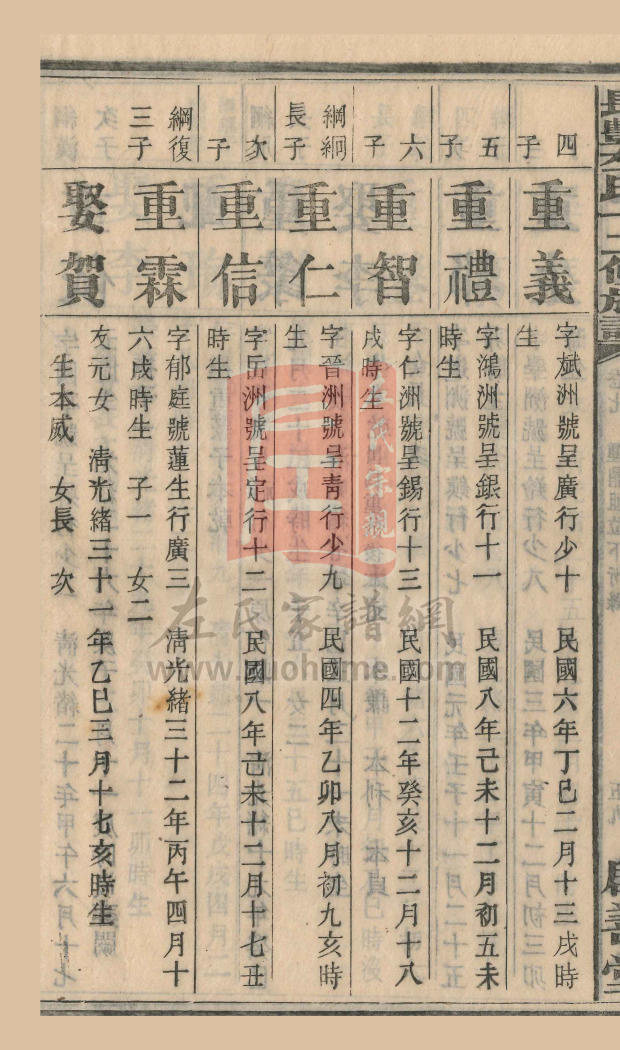 四子
重義
字斌洲號呈廣行少十 民國六年丁巳二月十三戌時
生
五子
重禮
字鴻洲號呈銀行十一 民國八年己未十二月初五未
時生
六子
重智
字仁洲號呈錫行十三 民國十二年癸亥十二月十八
戌時生
綱絅
長子
重仁
字晉洲號呈青行少九 民國四年乙卯八月初九亥時
生
次子
重信
字岳洲號呈定行十二 民國八年己未十二月十七丑
時生
綱復
三子
重霖
字郁庭號蓮生行廣三 清光緒三十二年丙午四月十
六戌時生 子一 女二
娶賀
友元女 清光緒三十一年乙巳三月十七亥時生
生本威 女長 次